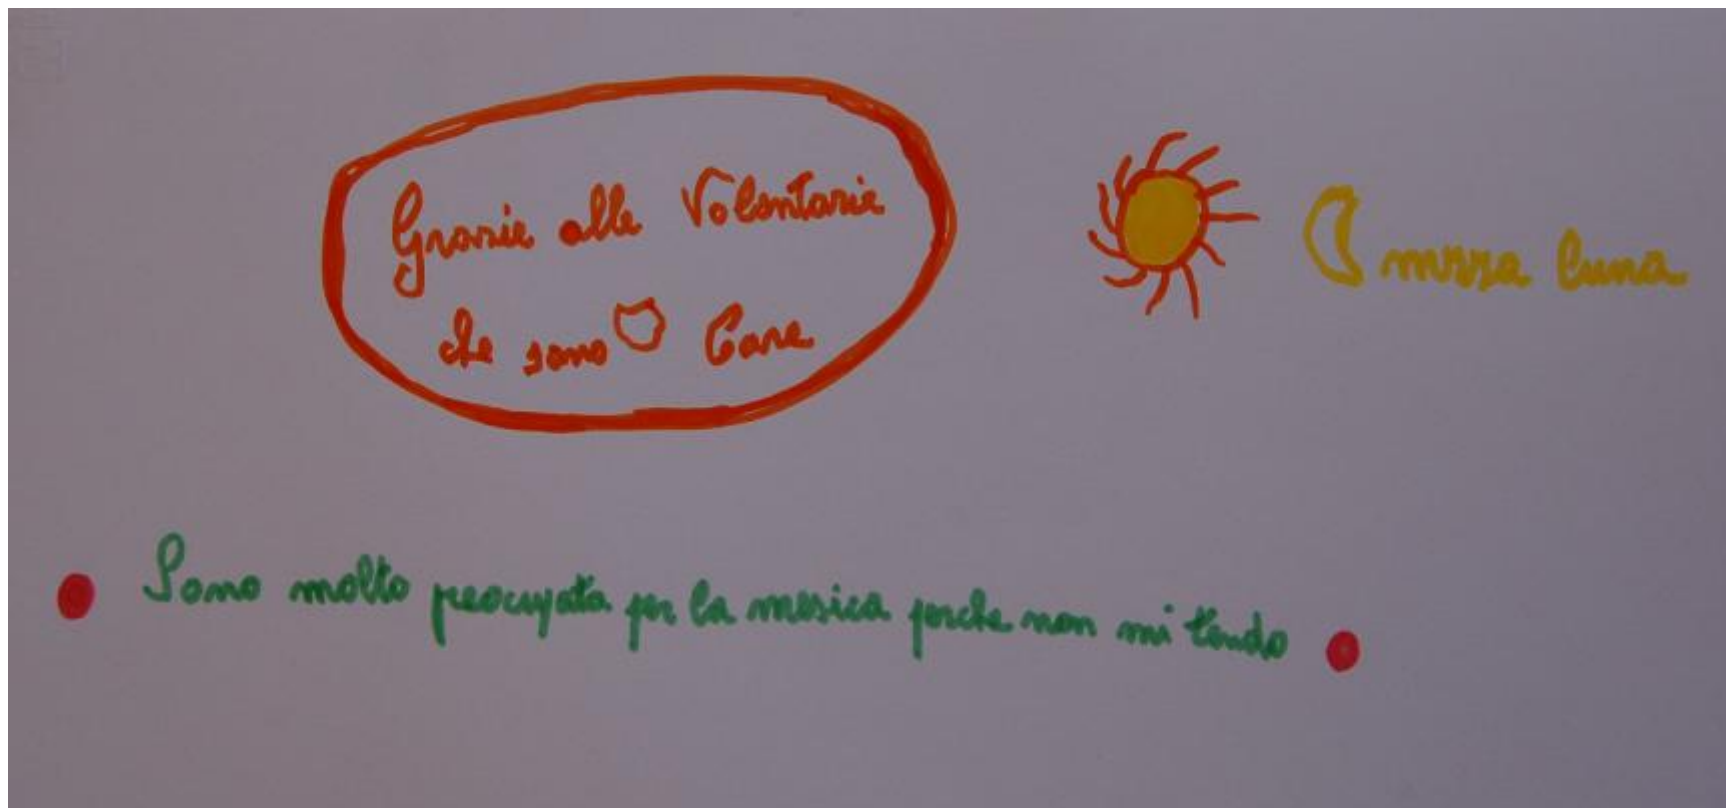 Grazie alle Volontarie
che sono Care
mezza luna
Sono molto preocupata per la mesica perche non mi tendo